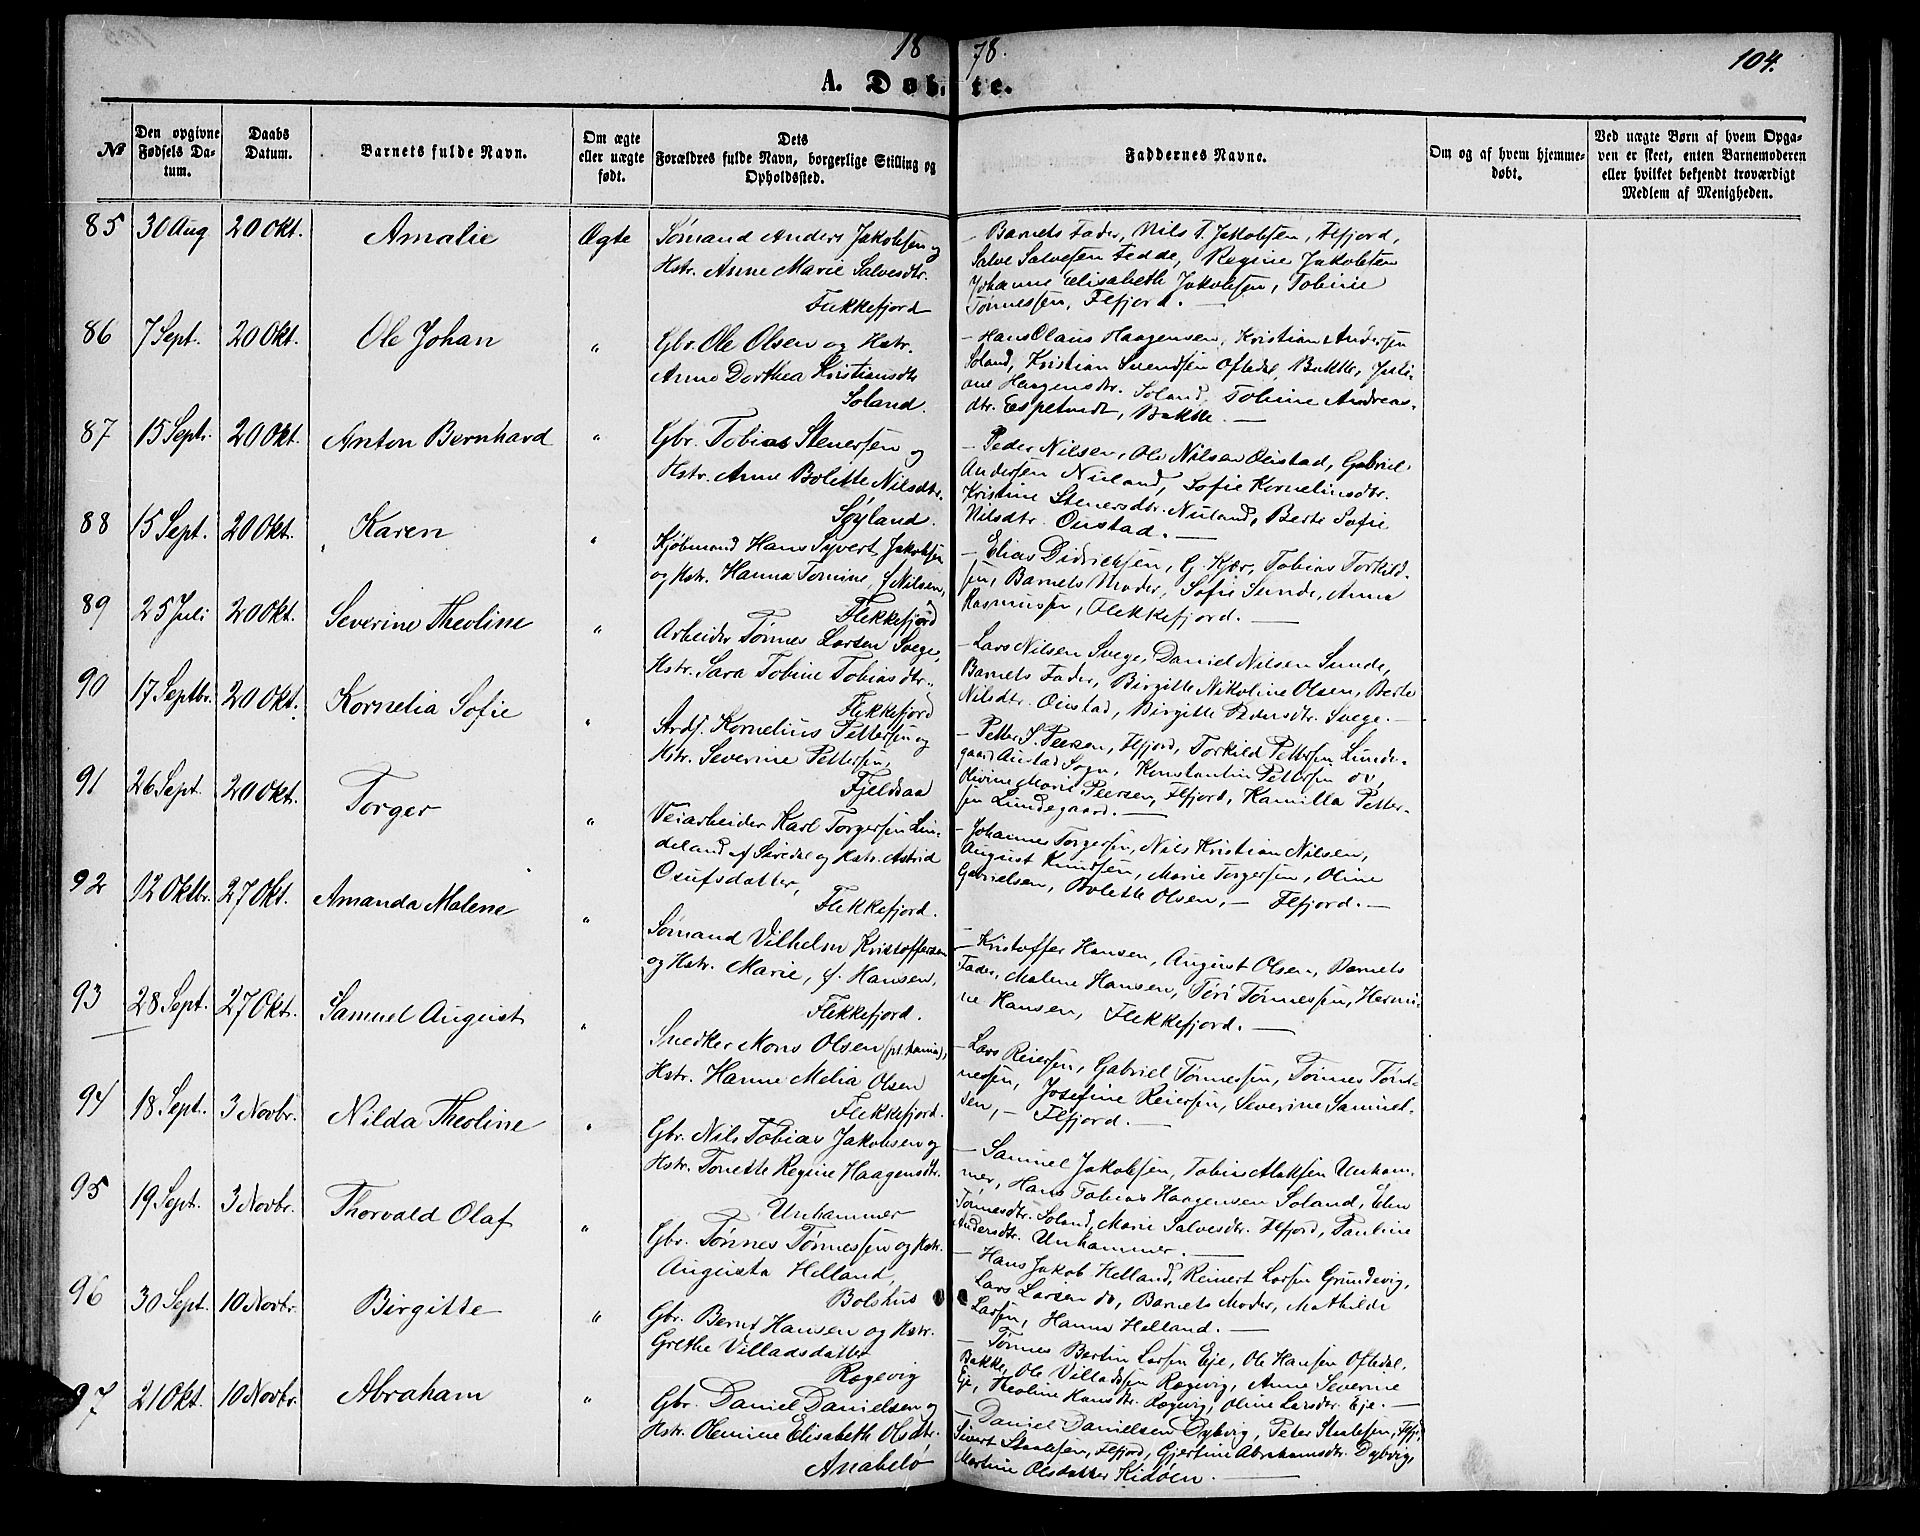 1878.
104.
A. Døbte.
No
Den opgivne Fødsels Datum.
Daabs Datum.
Barnets fulde Navn.
Om ægte eller uægte født.
Dets Forældres fulde Navn, borgerlige Stilling og Opholdssted.
Faddernes Navne.
Om og af hvem hjemmedøbt.
Ved uægte Børn af hvem Opgaven er skeet, enten Barnemoderen eller hvilket bekjendt troværdigt Medlem af Menigheden.
85 30 Aug 20 Okt. Amalie Ægte
Sømand Anders Jakobsen og
Hstr. Anne Marie Salvesdtr.
Flekkefjord
- Barnets Fader, Nils T. Jakobsen, Flfjord,
Salve Salvesen Fedde, Regine Jakobsen
Johanne Elisabeth Jakobsen, Tobine
Tønnessen, Flfjord. -
86 7 Sept. 20 Okt. Ole Johan "
Gbr. Ole Olsen og Hstr.
Anne Dorthea Kristiansdtr
Soland.
- Hans Claus Haagensen, Kristian Andersen
Soland, Kristian Svendsen Oftedal, Bakke,
ine Haagensdtr. Soland, Tobine Andreas-
dtr. Espetvedt, Bakke. -
87 15 Septr. 20 Okt. Anton Bernhard "
Gbr. Tobias Stenersen og
Hstr. Anne Bolette Nilsdtr.
Søyland.
- Peder Nilsen, Ole Nilsen Oustad, Gabriel
Andersen Nuland, Sofie Kornelinsdtr.
Kristine Stenersdtr. Nuland, Berte Sofie
Nilsdtr. Oustad. -
88 15 Sept. 20 Okt. Karen "
Kjøbmand Hans Syvert Jakobsen
og Hstr. Hanna Tomine, f. Nilsen,
Flekkefjord
- Elias Didrichsen, G. Kjær, Tobias Torkild-
sen, Barnets Moder, Sofie Sunde, Anna
Rasmussen, Flekkefjord. -
89 25 Juli 20 Okt. Severine Theoline "
Arbeider Tønnes Larsen Svege,
Hstr. Sara Tobine Tobiasdtr.
Flekkefjord
- Lars Nilsen Svege, Daniel Nilsen Sunde,
Barnets Fader, Birgitte Nikoline Olsen, Berte
Nilsdtr. Oustad, Birgitte Pedersdtr. Svege. -
90 17 Septbr. 20 Okt. Kornelia Sofie "
Ardf. Kornelius Pettersen og
Hstr. Severine Pettersen,
Fjeldsaa
- Petter S. Peersen, Flfjord, Torkild Pettersen Lunde-
gaard Austad Sogn, Konstantin Pettersen do,
Olivine Marie Peersen, Flfjord, Kamilla Petter-
sen Lundegaard. -
91 26 Sept. 20 Okt. Torger "
Veiarbeider Karl Torgersen Lin-
deland af Siredal og Hstr. Astrid
Osufsdatter,
Flekkefjord.
- Johannes Torgersen, Nils Kristian Nilsen,
August Knudsen, Marie Torgersen, Oline
Gabrielsen, Bolette Olsen, - Flfjord. -
92 12 Oktbr. 27 Okt. Amanda Malene "
Sømand Vilhelm Kristoffersen
og Hstr. Marie, f. Hansen,
Flekkefjord.
- Kristoffer Hansen, August Olsen, Barnets
Fader, Malene Hansen, Tøri Tønnessen, Hermi-
ne Hansen, Flekkefjord. -
93 28 Sept. 27 Okt. Samuel August "
Snedker Mons Olsen
Hstr. Hanne Melia Olsen
Flekkefjord.
- Lars Reiersen, Gabriel Tønnessen, Tønnes Tøn-
nessen, Josefine Reiersen, Severine Samuel-
sen, - Flfjord. -
94 18 Sept. 3 Novbr. Nilda Theoline "
Gbr. Nils Tobias Jakobsen og
Hstr. Tonette Regine Haagensdtr.
Unhammer
- Samuel Jakobsen, Tobias Aleksen Unham-
mer, Hans Tobias Haagensen Soland, Elen
Tønnesdtr. Soland, Marie Salvesdtr. Flfjord, Pauline
Andersdtr. Unhammer. -
95 19 Sept. 3 Novbr. Thorvald Olaf "
Gbr. Tønnes Tønnessen og Hstr.
Augusta Helland,
Bolshus
- Hans Jakob Helland, Reinert Larsen Grundevig,
Lars Larsen do, Barnets Moder, Mathilde
Larsen, Hanna Helland. -
96 30 Sept. 10 Novbr. Birgitte "
Gbr. Bernt Hansen og Hstr.
Grethe Villadsdatter
Røgevig
- Tønnes Bertin Larsen Eje, Ole Hansen Oftedal,
Bakke, Ole Villadsen Røgevig, Anne Severine
Eje, Theoline Hansdtr. Røgevig, Oline Larsdtr. Eje. -
97 21 Okt. 10 Novbr. Abraham "
Gbr. Daniel Danielsen og
Hstr. Olemine Elisabeth Olsdtr.
Anabelø
- Daniel Danielsen Dybvig, Peter Staalesen, Flfj.
Sivert Staalesen, Flfjord, Gjertine Abrahamsdtr. Dybvig,
Martine Olsdatter Kidøen. -